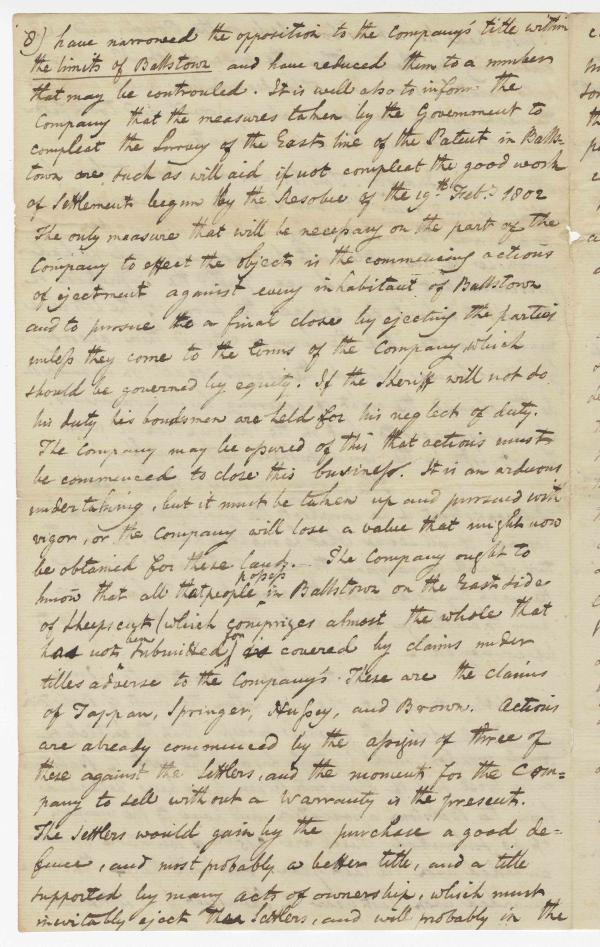 8) have narrowed the opposition to the Company's title within
the limits of Ballstown and have reduced them to a number
that may be controuled. It is well also to inform the
Company that the measures taken by the Government to
compleat the Survey of the East line of the Patent in Balls-
town are such as will aid if not compleat the good work
of Settlement begun by the Resolve of the 19th Feb.y 1802
The only measure that will be necessary on the part of the
Company to effect the object is the commencing actions
of ejectment against every inhabitant of Ballstown
and to pursue to a final close by ejecting the parties
unless they come to the terms of the Company which
should be governed by equity. If the Sheriff will not do
his duty his bondsmen are held for his neglect of duty.
The Company may be assured of this that actions must
be commenced to close this business. It is an arduous
undertaking, but it must be taken up and pursued with
vigor, or the Company will lose a value that might now
be obtained for these lands. The Company ought to
know that all that people possess in Ballstown on the East side
of Sheepscut (which comprizes almost the whole that
has not been submitted for) is covered by claims under
titles adverse to the Company's. These are the claims
of Tappan, Springer, Hussey, and Brown. Actions
are already commenced by the assigns of three of
these against the Settlers, and the moment for the Com=
pany to sell without a Warranty is the present.
The Settlers would gain by the purchase a good de=
fence, and most probably a better title, and a title
supported by many acts of ownership, which must
inevitably eject the Settlers, and will probably in the